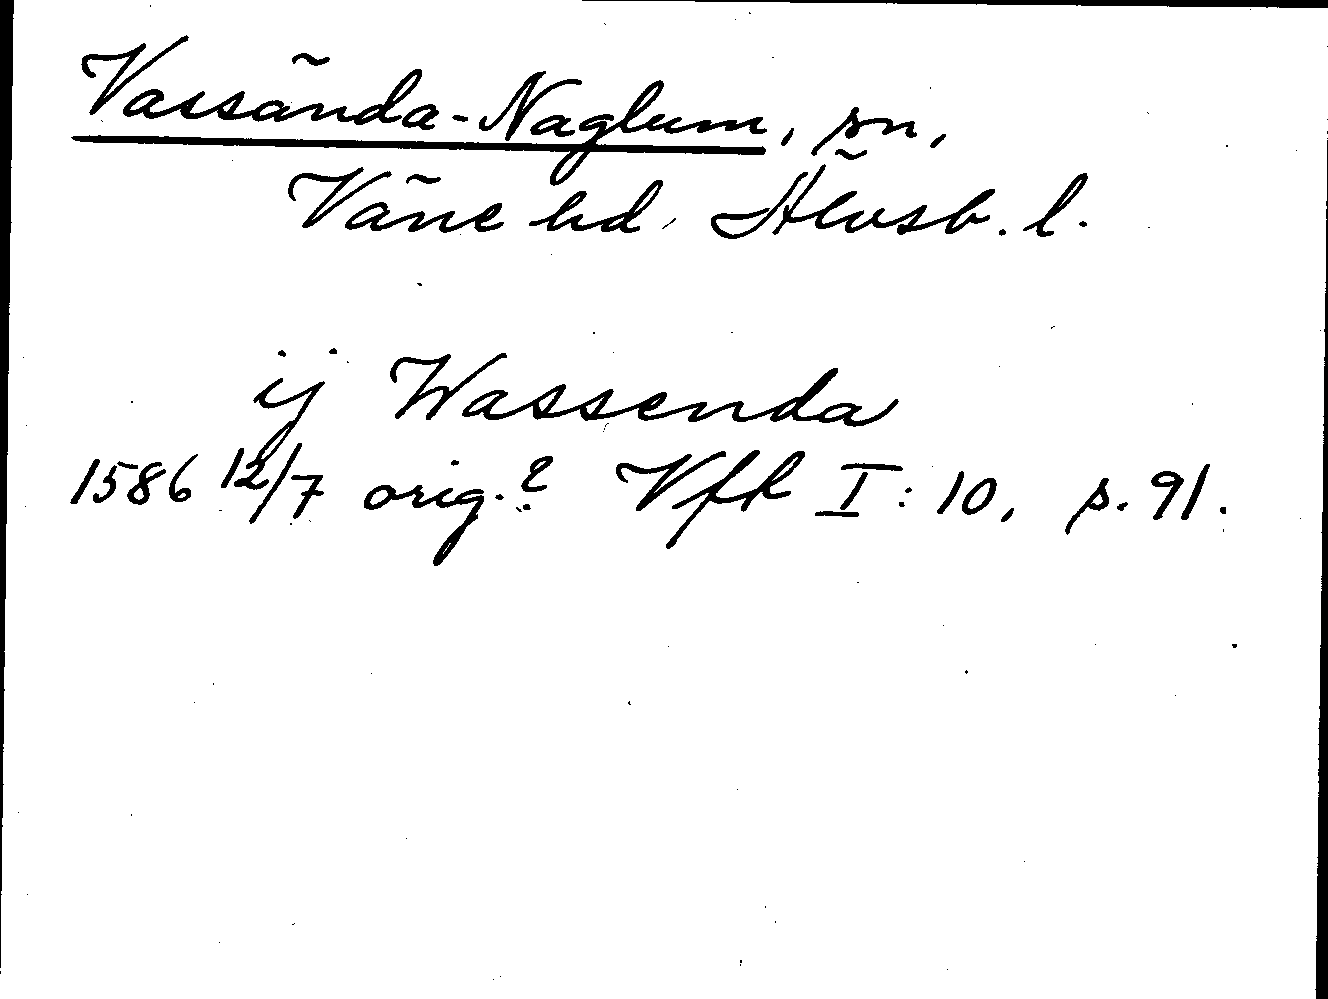 Vassända-Naglum, sn,
Väne hd, Älvsb. l.
ij Wassenda
1586 12/7 orig.? Vfl I:10, s. 91.